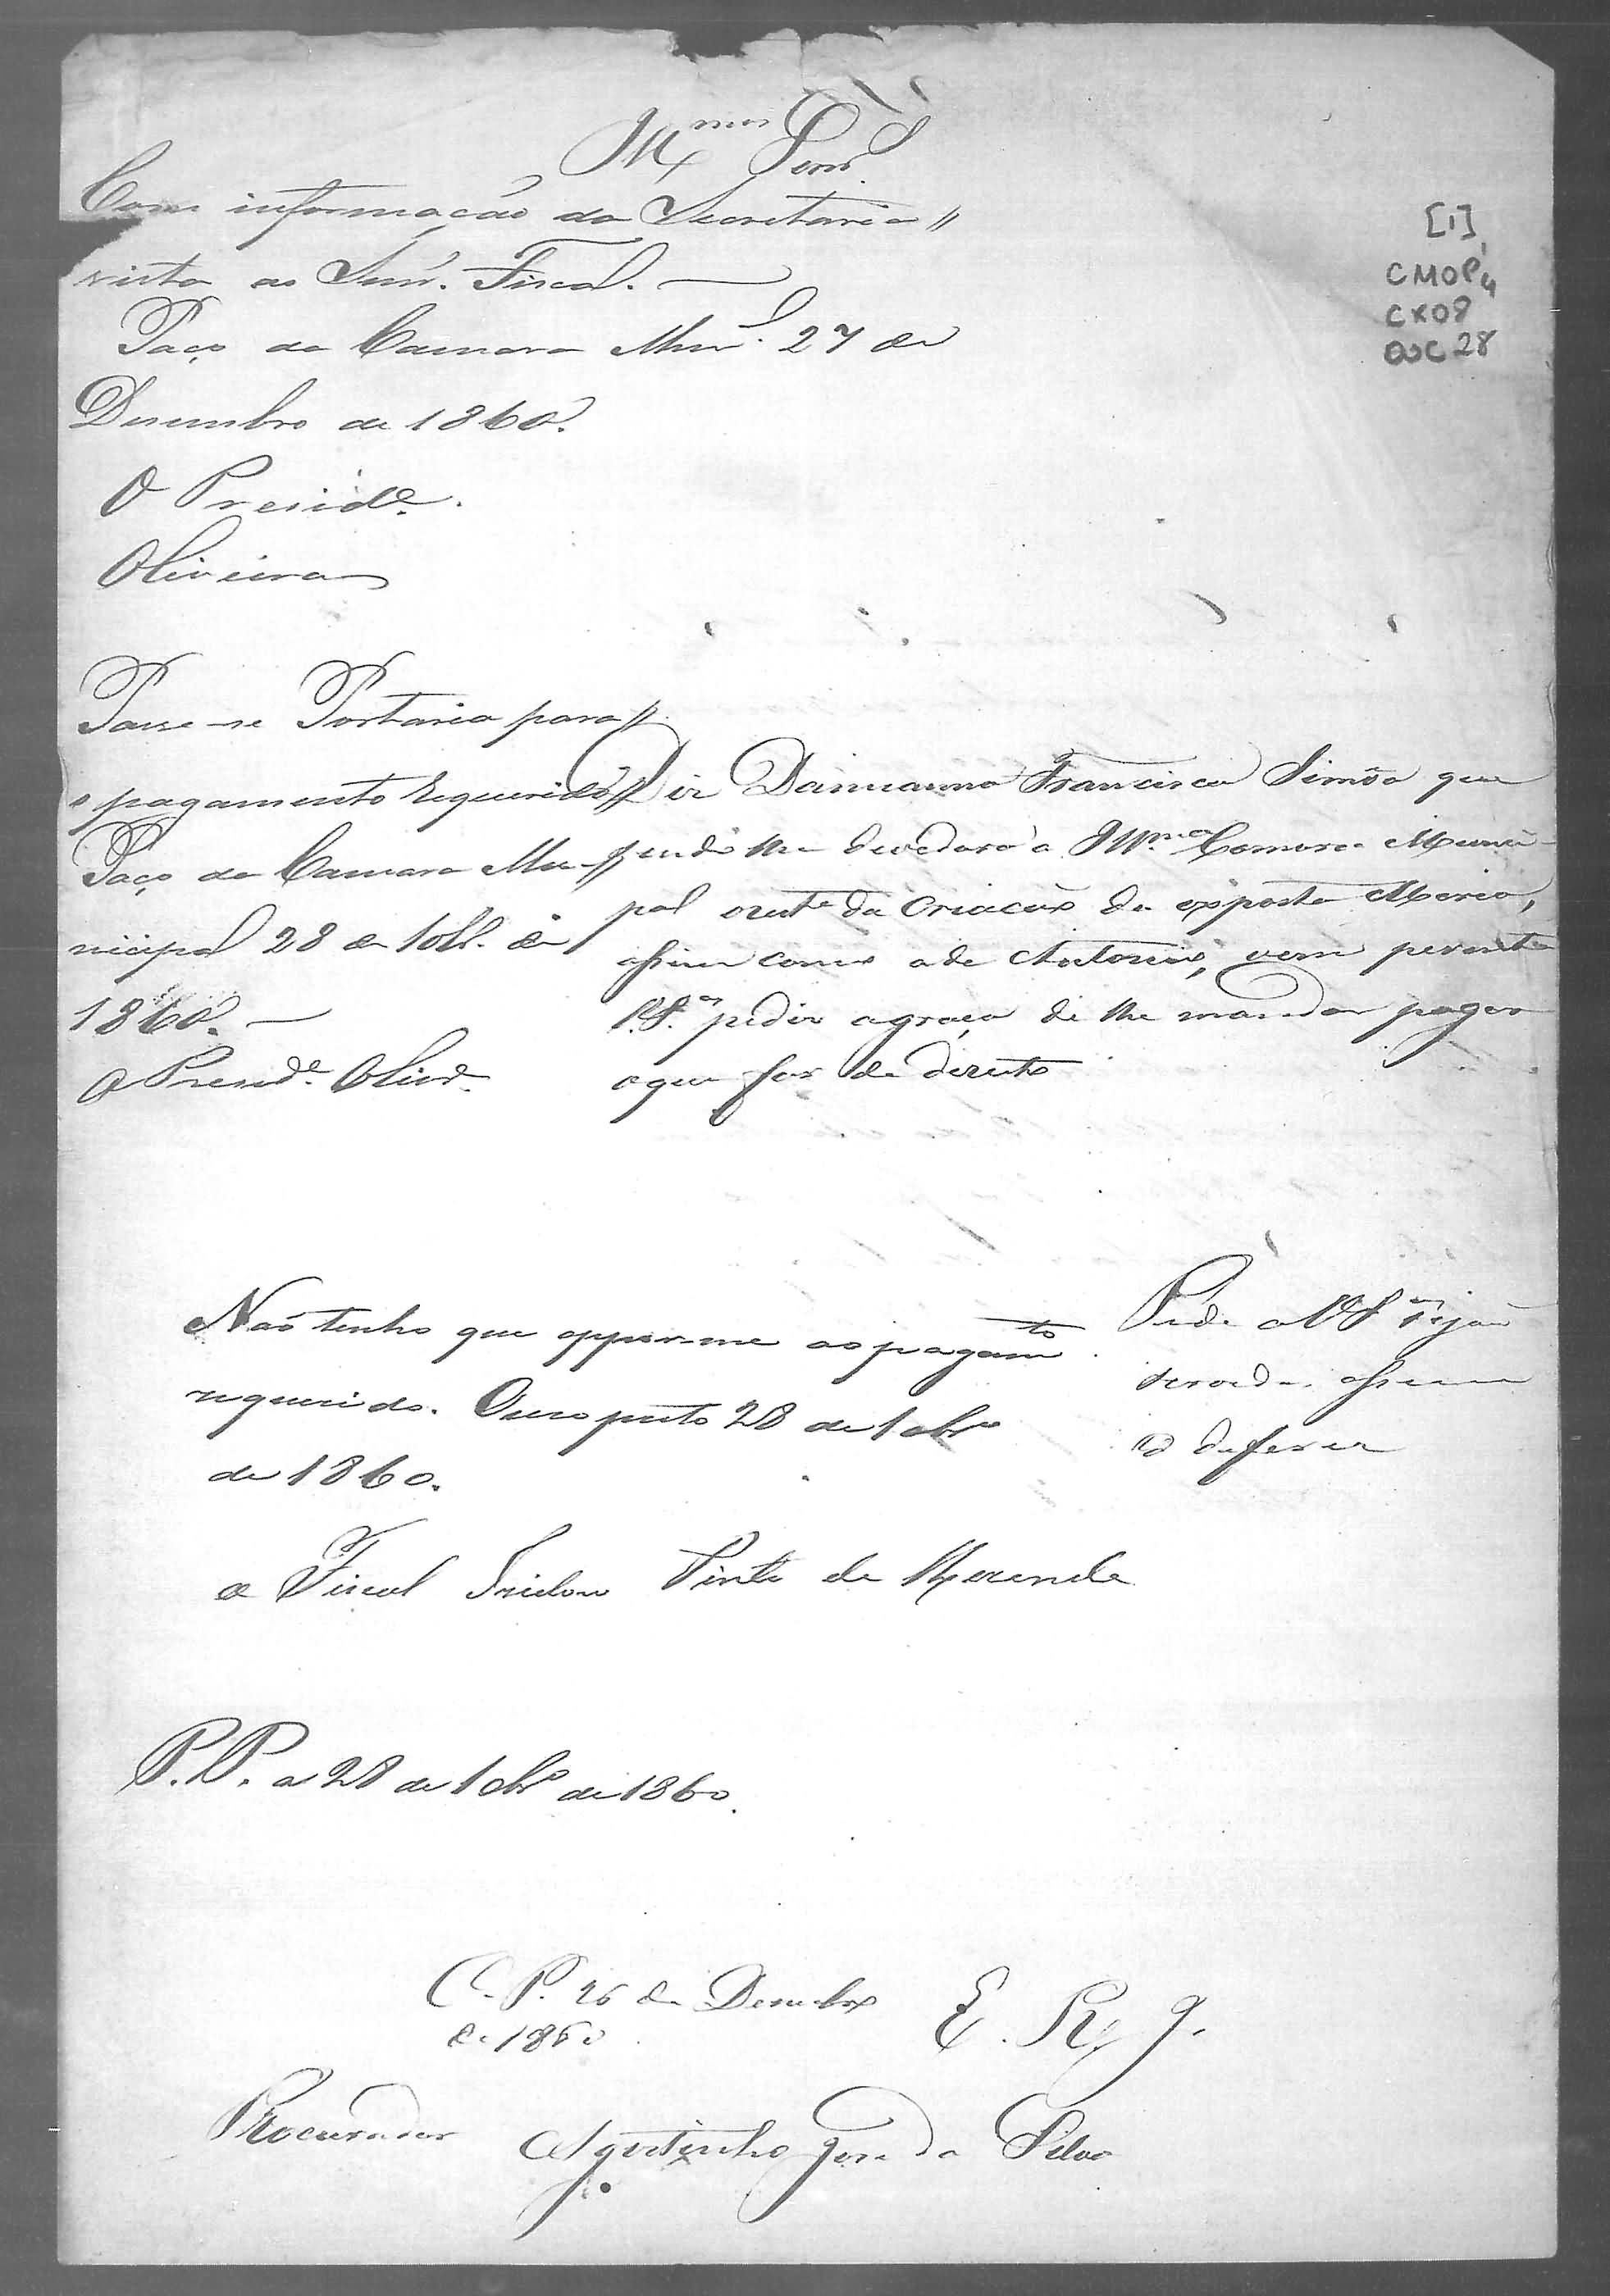 Ill.mos Senr.
Com informação da Secretaria //
vista ao Senr. Fiscal. —
Paço da Camara Mun.l 27 de
Dezembro de 1860.
O Presid.e
Oliveira
[1]
CMOP
CX08
DOC 28
Passe-se Portaria para //
o pagamento requerido //
Paço da Camara Mu-
nicipal 28 de 10br. de
1860. —
O Presid.e Oliv.a
Diz Damianna Francisca Simôa que
sendo lhe devedora a Ill.ma Camara Munici-
pal da criação da exposta Maria,
assim como a de Antonio, vem perante
V.S.as pedir a graça de lhe mandar pagar
o que for de direito
Pede a V.S.as sejão
servidos assim
o deferir
Não tenho que oppor-me ao pagam.to
requerido. Ouro preto 28 de 10br.o
de 1860.
O Fiscal Pinto de Rezende
P.P. a 28 de 10br.o de 1860.
O. P. 26 de Dezembro
de 1860
E. R. J.
Procurador Agostinho Jose da Silva